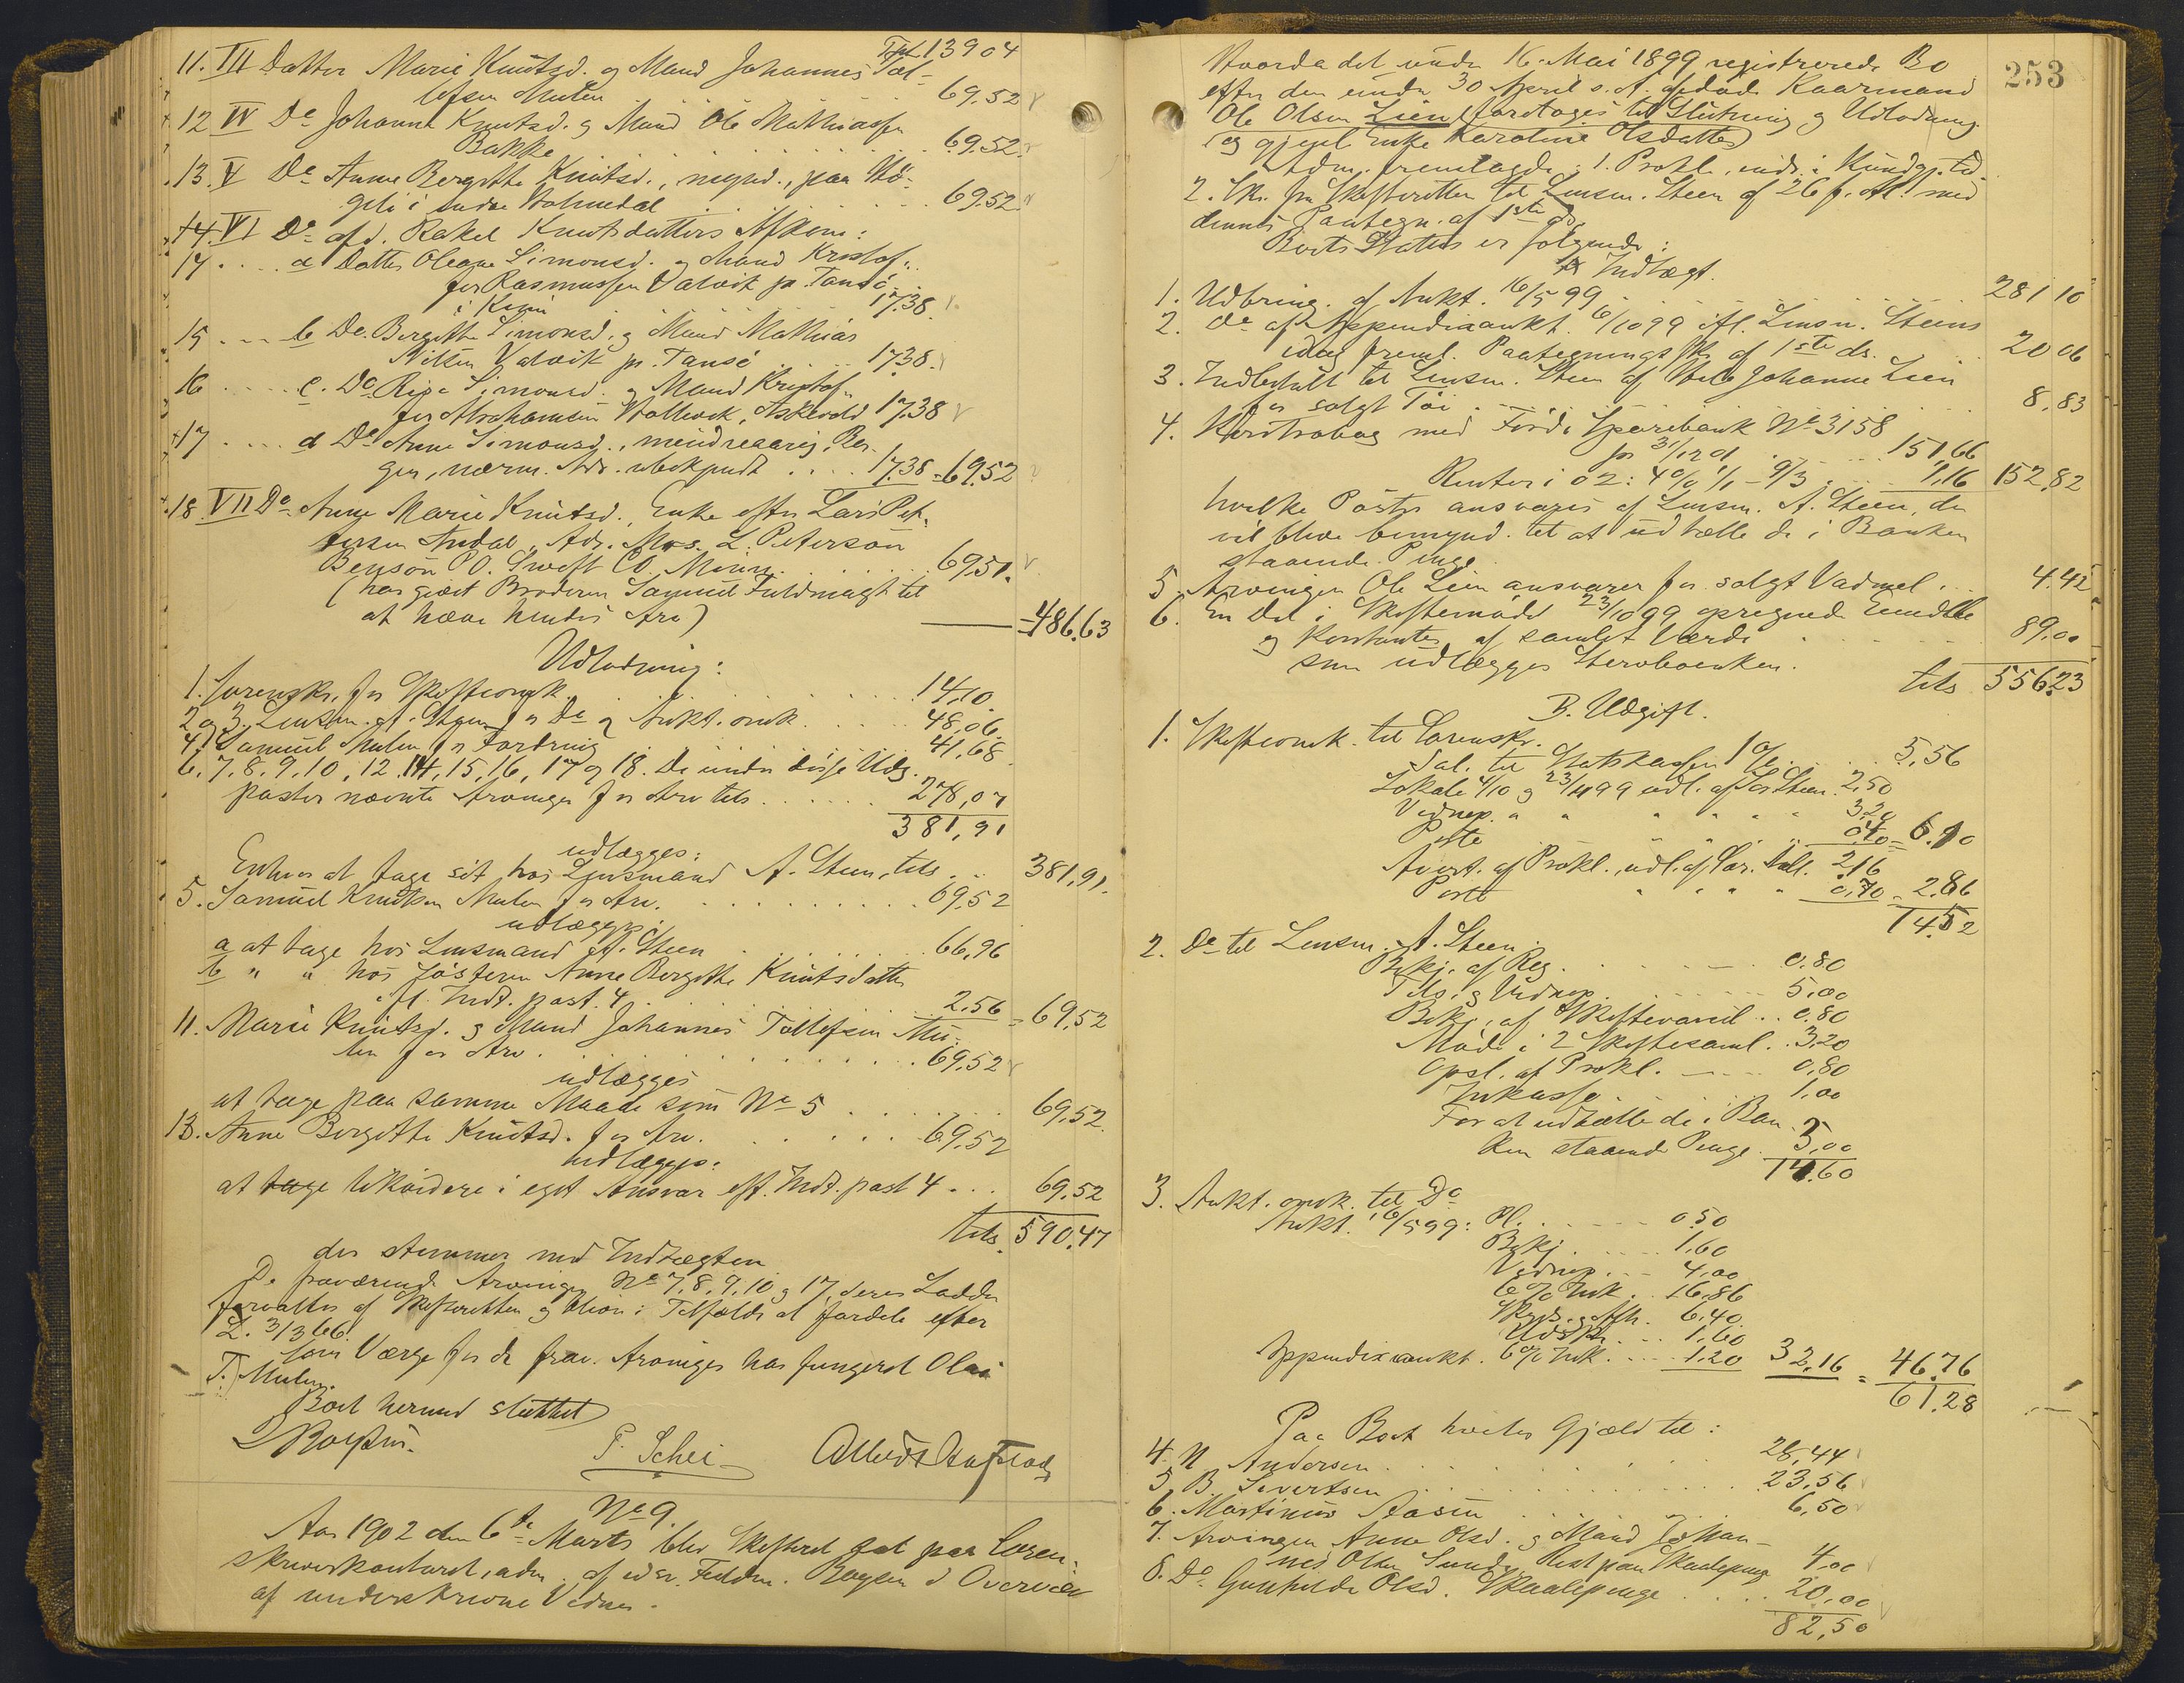 Tpt. 139 04
11. III Datter Marie Knutsd. og Mand Johannes Tol-
lefsen Mulen 69,52
12 IV Do Johanna Knutsd. og Mand Ole Mathiassen
Bakke . . . 69,52.
13. V Do Anne Bergitte Knutsd., mynd., paa
i Indre Holmedal . . . 69,52
14. VI Do afd. Rakel Knutsdatters Afkom:
14 . . . . a Datter Oleane Simonsd. og Mand Kristof-
fer Rasmussen Valvik pr. Tansø
i Kinn 17,38.
15 . . . b Do. Bergitte Simonsd. og Mand Mathias
Nilsen Valvik pr. Tansø . . . 17,38.
16 . . . . c. Do. Simonsd. og Mand Kristof-
fer Abrahamsen Askevold 17,38
17 . . . . d Do Anne Simonsd., mindreaarig, Ber-
gen, nærm. Adr. ubekjendt . . . . 17,38 = 69,52
18 VII Do Anne Marie Knutsd., Enke efter Lars Pet-
tersen Andal, Adr. Mrs. L. Peterson
Benson P.O. Swift Co. Minn. . . . 69,51.
(har givet Broderen Samuel Fuldmagt til
at hæve hendes Arv) 486,63
Udlodning:
1. Sorenskr. for Skifteomk. . . . 14,10.
2 og 3. Lensm. A. Steen for Do og Aukt. omk. . . . 48,06.
4) Samuel Mulen for Fordring 41,68.
6. 7. 8. 9. 10, 12. 14, 15, 16, 17 og 18. De under disse Udg.
poster nævnte Arvinger for Arv tils. . . . 278,07
381,91
udlægges:
Enhver at tage sit hos Lensmand A. Steen, tils. . . 381,91.
5. Samuel Knutsen Mulen for Arv. . . . 69,52
udlægges:
a at tage hos Lensmand A. Steen . . . 66,96
b " " hos Søsteren Anne Bergitte Knutsdatter
efl. Indt. post. 4 . . . 2,56 = 69,52
11. Marie Knutsd. og Mand Johannes Tollefsen Mu-
len for Arv . . . 69,52
udlægges
at tage paa samme Maade som No 5 . . . 69,52.
13. Anne Bergitte Knutsd. for Arv. . . . 69,52
udlægges:
at tage likvidere i eget Ansvar eft. Indt. post 4 . . . 69,52
tils. 590,47
der stemmer med Indtægten
De fraværende Arvinger No 7, 8, 9, 10 og 17, deres Lodder
forvaltes af Skifteretten og bliver i Tilfælde at fordele efter
L. 3/3 66.
Som Værge for de frav. Arvinger har fungeret Olai
T. Mulen.
Boet hermed sluttet
Boysen. P. Schei
No 9.
Aar 1902 den 6te Marts blev Skifteret sat paa Soren-
skriverkontoret, adm. af edsv. Fuldm. Boysen i Overvær
af underskrevne Vidner.
253
Hvorda det under 16. Mai 1899 registrerede Bo
efter den under 30 April s. A. afdøde Kaarmand
Ole Olsen Lien foretoges til Slutning og Udlodning.
(og gjenl. Enke Karoline Olsdatter)
Adm. fremlagde: 1. Prokl., indr. i Kundgj. tid.
2. Skr. fra Skifteretten til Lensm. Steen af 26 f. M. med
dennes Paategn. af 1ste ds.
Boets Status er følgende:
A Indtægt.
1. Udbring. af Aukt. 16/5 99 . . . 281 10
2. Do af Appendixaukt. 6/10 99 ifl. Lensm. Steens
idag freml. Paategnings Skr. af 1ste ds. . . 20 06
3. Indbetalt til Lensm. Steen af Johanne Lien
for solgt Tøi . . . 8,83
4. Kontrabog med Førde Sparebank No 3158
pr 31/12 01 . . . 151,66
Renter i 02: 4% 1/1 - 9/3 . . . 1,16 152,82
hvilke Poster ansvares af Lensm. A. Steen, der
vil blive bemynd. til at udhæve de i Banken
staaende Penge
5. Arvingen Ole Lien ansvarer for solgt Vadmel . . . 4,42
6. En Del i Skiftemøde 23/10 99 opregnede Eiendele
og Kontanter, af samlet Værdi . . . 89,00
som udlægges Stervboenken.
tils 556,23
B. Udgift.
1. Skifteomk. til Sorenskr.
Sal. til Statskassen 1% . . . 5,56
Lokale 4/10 og 23/11 99 udl. af Lensm. Steen. 2,50
Vidnep. " " " " " 3,20
Porto " " " 0,40 = 6.10
Avert. af Prokl., udl. af Sor. 2,16
Porto " " " " 0,70 = 2,86
14,52
2. Do til Lensm. A. Steen.
Bekj. af Reg. . . . 0.80
Tils. og Vidnep. . . . 5,00
Bekj. af Skiftevarsel . . 0.80
Møde i 2 Skiftesaml. . 3,20
Opsl. af Prokl. . . . 0,80
Inkasso . . . 1,00
For at udhæve de i Ban-
ken staaende Penge 3,00
14,60
3. Aukt. omk. til Do
Aukt. 16/5 99: Pl. . . . 0.50
Bekj. . . . 1.60
Vidnep. . . 4,00
6% Ink. . 16,86
Skyds og Afh. 6,40.
Udskr. . . 1,60
Appendixaukt. 6% Ink. . . . 1.20 32,16 = 46,76
61,28
Paa Boet hviler Gjæld til:
4. N Andersen . . . 28,44
5, B. Sivertsen . . . 23,56
6. Martinus Aasen . . . 6,50
7. Arvingen Anne Olsd. og Mand Johan-
nes Olsen Sunde, Rest paa Skaalepenge 4,00
8. Do Gunhilde Olsd. Skaalepenge . . . 20,00
82,50